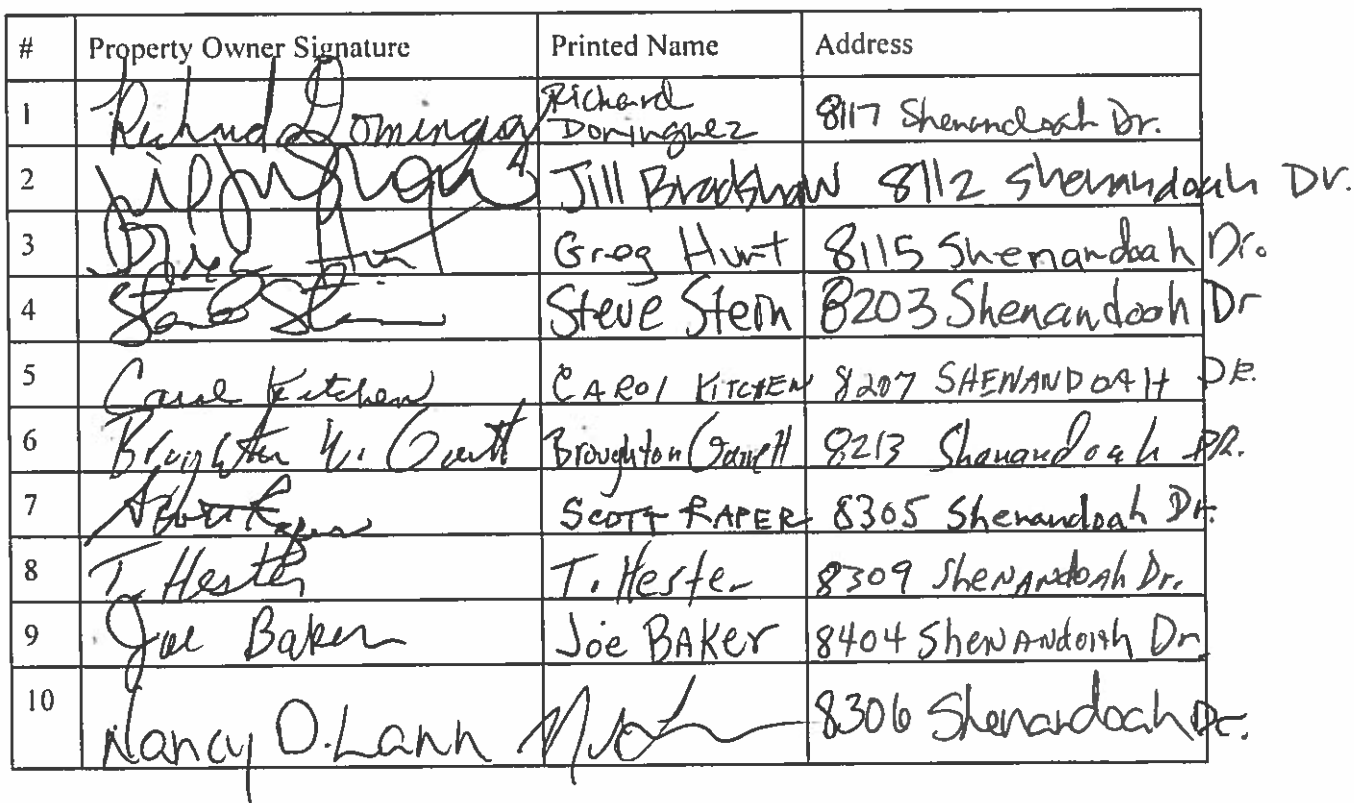 # Property Owner Signature Printed Name Address
1 Richard Dominguez Richard
Dominguez 8117 Shenandoah Dr.
2 Jill Bradshaw 8112 Shenandoah Dr.
3 Greg Hurt Greg Hurt 8115 Shenandoah Dr.
4 Steve Stern Steve Stern 8203 Shenandoah Dr
5 Carol Kitchen CAROl KITCHEN 8207 SHENANDOAH DR.
6 Broughton Garrett 8213 Shanandoah DR.
7 Scott Raper SCOTT RAPER 8305 Shenandoah Dr.
8 T. Hester T. Hester 8309 SheNANdoAh Dr.
9 Joe Baker Joe BAKer 8404 SheNANdoAh Dr
10 Nancy D. Lann 8306 Shenandoah Dr.